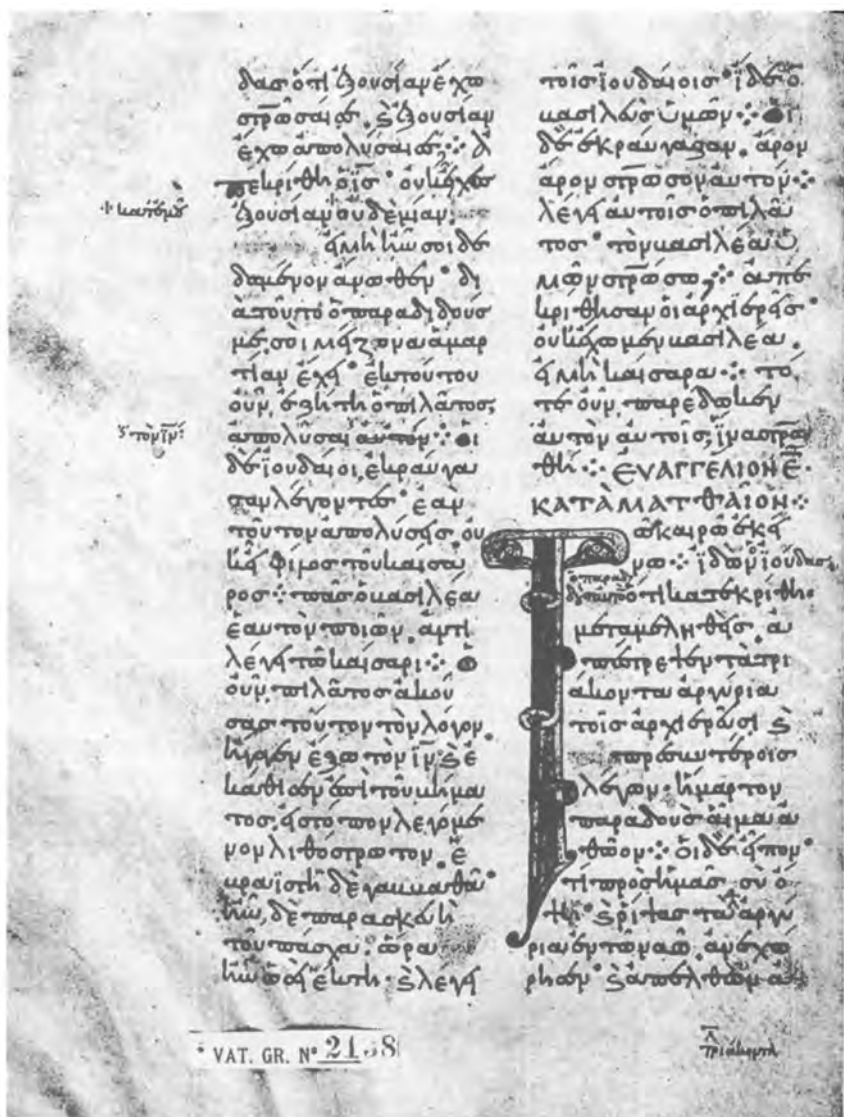 δας ὅτι ἐξουσίαν ἔχω
σ̅τ̅ρ̅ῶσαί σε, ϗ ἐξουσίαν
ἔχω ἀπολῦσαί σε ⁘ ἀ
πεκρίθη ὁ ι̅ς̅· οὐκ ἔχεις
κατ' ἐμοῦ
ἐξουσίαν οὐδεμίαν·
εἰ μὴ ἦν σοι δε
δομένον ἄνωθεν· δι
ὰ τοῦτο ὁ παραδιδούς
με σοι μείζονα ἁμαρ
τίαν ἔχει· ἐκ τούτου
οὖν, ἐζήτει ὁ πιλάτος,
τὸν ι̅ν̅:
ἀπολῦσαι αὐτόν ⁘ οἱ
δὲ ἰουδαῖοι, ἐκραύγα
ζον λέγοντες· ἐὰν
τοῦτον ἀπολύσῃς οὐ
κ εἶ φίλος τοῦ καίσα
ρος ⁘ πᾶς ὁ βασιλέα
ἑαυτὸν ποιῶν, ἀντι
λέγει τῷ καίσαρι ⁘ ὁ
οὖν πιλάτος ἀκού
σας τοῦτον τὸν λόγον,
ἤγαγεν ἔξω τὸν ι̅ν̅ ϗ ἐ
κάθισεν ἐπὶ τοῦ βήμα
τος, εἰς τόπον λεγόμε
νον λιθόστρωτον, ἑ
βραϊστὶ δὲ γαββαθᾶ·
ἦν δὲ παρασκευὴ
τοῦ πάσχα, ὥρα
ἦν ὡσεὶ ἕκτη· ϗ λέγει
τοῖς ἰουδαίοις· ἴδε ὁ
βασιλεὺς ὑμῶν ⁘ οἱ
δὲ ἐκραύγαζαν, ἆρον
ἆρον σ̅τ̅ρ̅ωσον αὐτόν ⁘
λέγει αὐτοῖς ὁ πιλᾶ
τος· τὸν βασιλέα ὑ
μῶν σ̅τ̅ρ̅ώσω; ⁘ ἀπε
κρίθησαν οἱ ἀρχιερεῖς·
οὐκ ἔχομεν βασιλέα,
εἰ μὴ καίσαρα ⁘ τό
τε οὖν, παρέδωκεν
αὐτὸν αὐτοῖς, ἵνα σ̅τ̅ρ̅ω
θῆ ⁘ ΕΥΑΓΓΕΛΙΟΝ Ε̅
ΚΑΤᾺ ΜΑΤΘΑῖΟΝ ⁘
Τῶ καιρῶ ἐκεί
νω ⁘ ἰδὼν ὁ ἰούδας
ὁ παραδιδοὺς αὐτὸν ὅτι κατεκρίθη·
μεταμεληθεὶς, ἀ
πέστρεψεν τὰ τρι
άκοντα ἀργύρια
τοῖς ἀρχιερεῦσι ϗ
πρεσβυτέροις
λέγων· ἥμαρτον
παραδοὺς αἷμα ἀ
θῶον ⁘ οἱ δὲ εἶπον·
τί πρὸς ἡμᾶς· σὺ ὄ
ψη· ϗ ῥίψας τὰ ἀργύ
ρια ἐν τῶ ναῶ, ἀνεχώ
ρησεν· ϗ ἀπελθὼν ἀ
VAT. GR. Nº 2138
λ̅
τριάκοντα